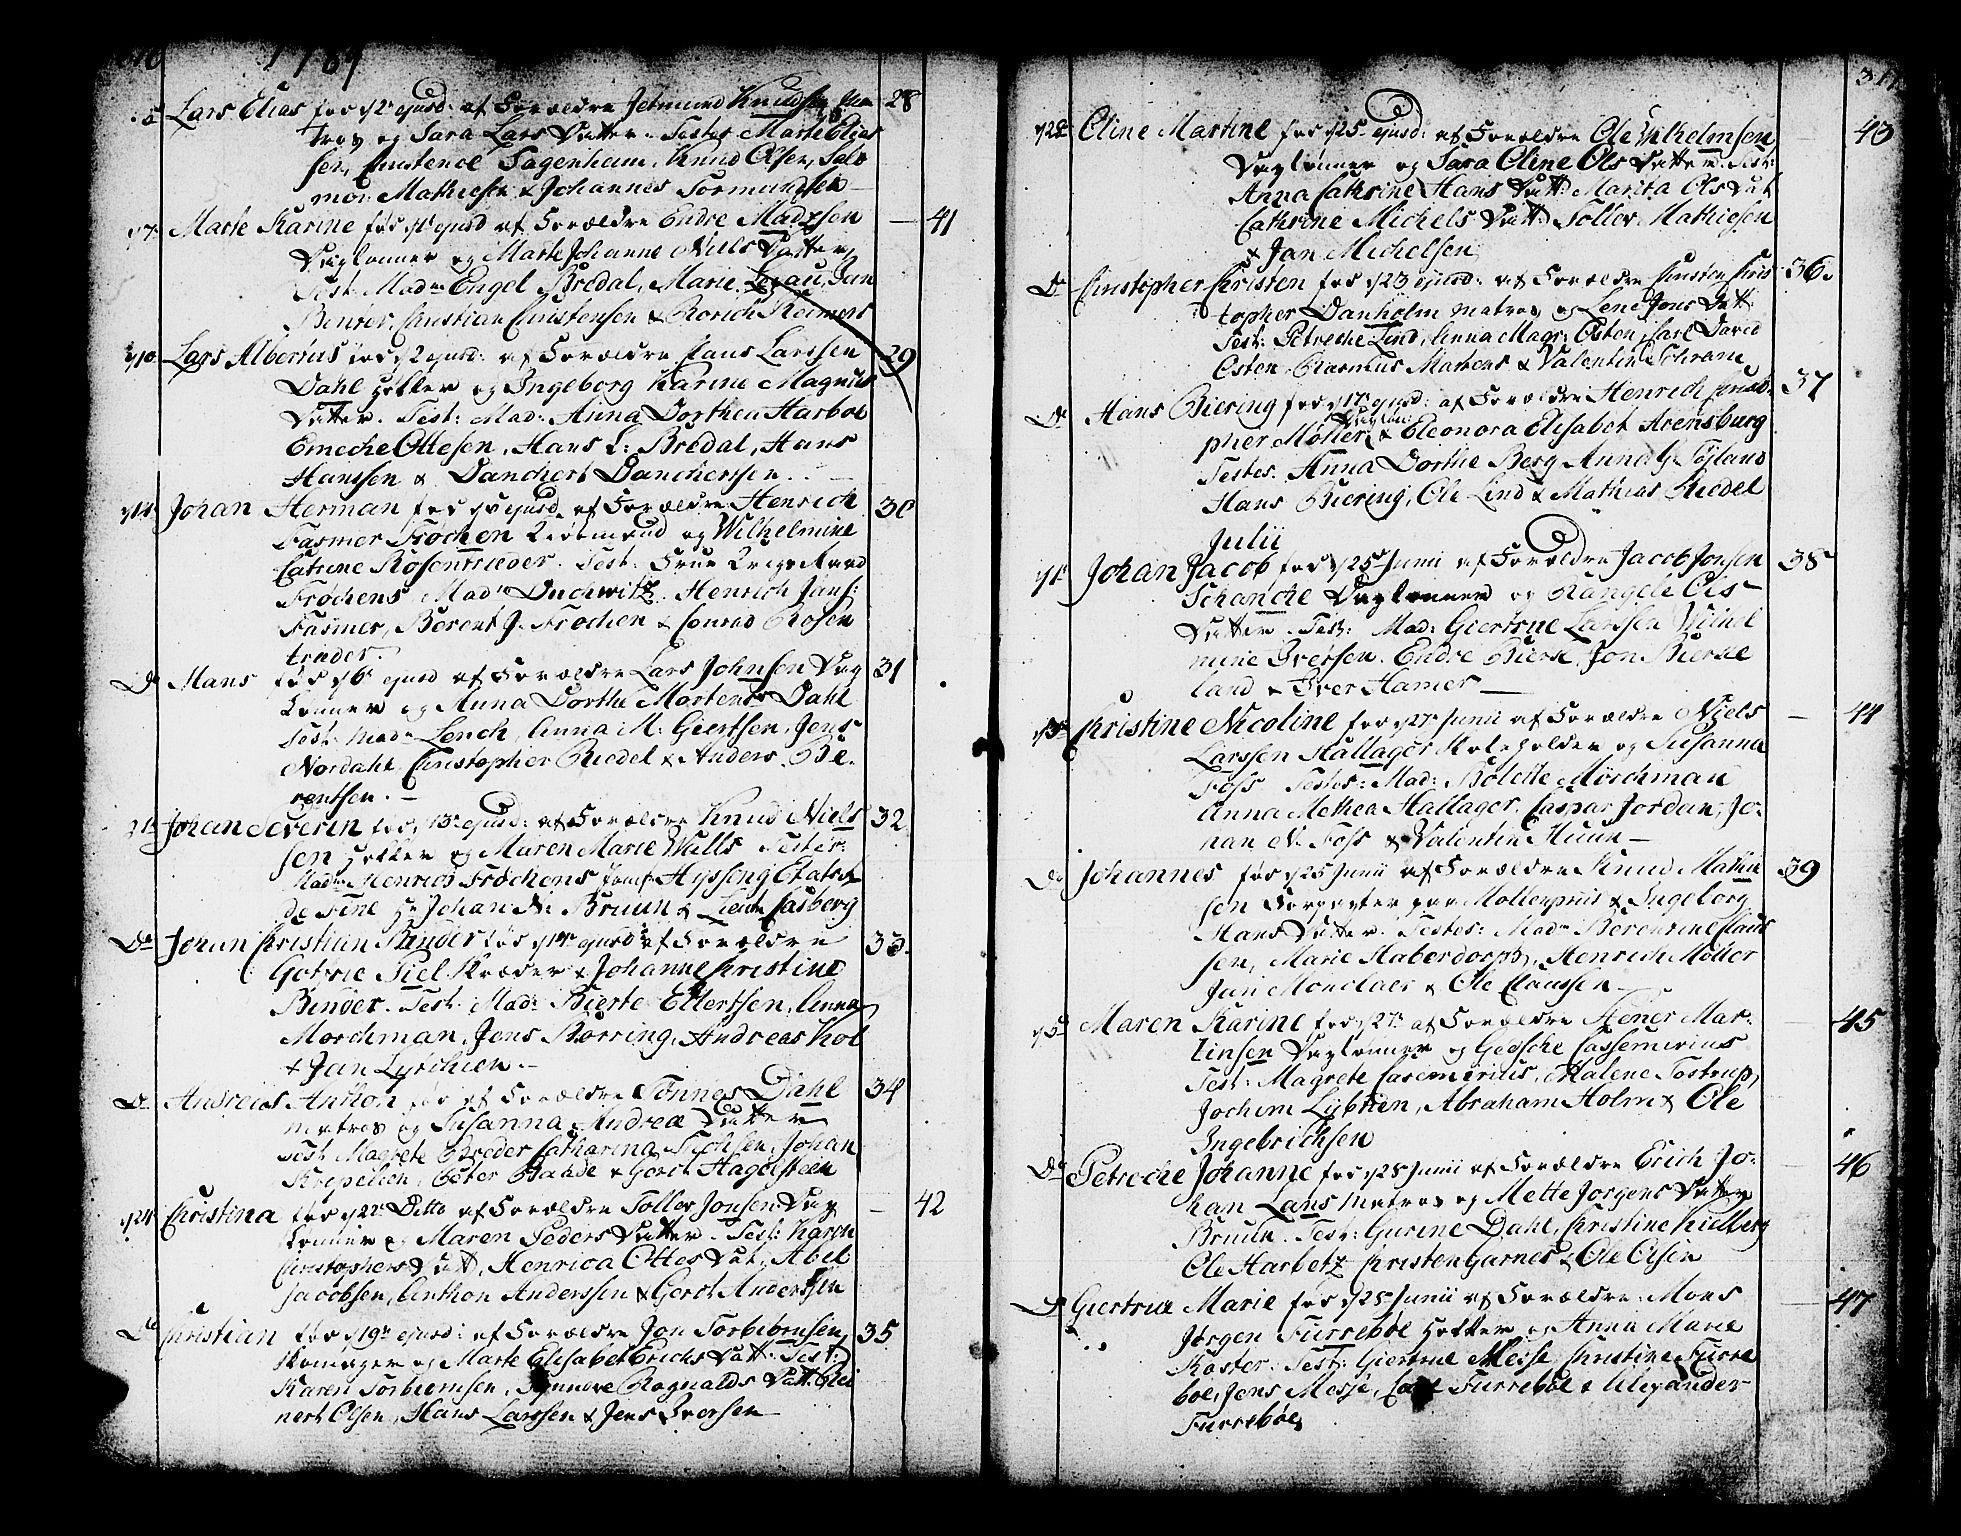 1789
Lars Elias fød d 2 ejusd: af Forældre Jetmund Knudsen
tros og Sara Lars Datter. Testes Marte Elias
sen, Tagenheim, Knud Olsen, Salo
mon Mathiesen & Johannes Tormundsen
28
d 7 Marte Karine fød ejusd af Forældre Endre Madssen
Dagleonner og Marte Johanne Niels Datter
Test: Madm Engel Bredal, Marie Legau, Jan
Christian Christensen & Rorich Reimers
41
d 10 Lars Albertus fød d 2 ejusd: af Forældre Claus Larssen
Dahl og Ingeborg Karine Magnus
Datter. Test: Mad: Anna Dorthea Harboe
Emeche Ottesen, Hans L: Bredal, Hans
Hanssen & Danchert Danchertsen.
29
d 14 Johan Herman fød ejusd af Forældre Henrich
Fasmer Frochen og Wilhelmine
Catrine Rosentrieder. Test: Frue
Frochens, Madm Duchwitz, Henrich Jans:
Fasmer, Berent J. Frochen & Conrad Rosen
trieder.
30
Do Mans fød d 6 ejusd af Forældre Lars Johnsen Dag
lonner og Anna Dorthe Mortens Dahl
Test: Madm Lench, Anna M: Giertsen, Jens
Nordahl, Christopher Riedel & Anders Be-
rentsen.
31
21 Johan Severin fød 13 ejusd: af Forældre Knud Niels
sen og Maren Marie Wills Testes:
Madm Henrich Frochens Jomf: Hyssing
de Fine Hr Johan N: Bruun & Lieutn Casberg
32
Do Johan Christian Binder fød d 14 ejusd af Forældre
Gotfrie Tiel & Johanne Christine
Binder. Test: Mad: Bierte Ellertsen, Anna
Morchman, Jens Rorring, Andreas Kol
& Jan Lyrichien.
33
Do Andreas Anthon fød af Forældre Tonnes Dahl
matros og Susanna Andrea Datter
Test Magrete Broder Catharina Tichsen, Johan
Krepelien, Peter Baade & Gerdt Hagelsteen
34
d 24 Christina fød d 22 Ditto af Forældre Tollev Jonsen Dag
lonner og Maren Peders Datter. Test: Karen
Christophers Datt, Henrica Ottes Dat, Abel
Jacobsen, Anthon Anderssen & Gerdt Andersen
42
Do Christian fød d 19 ejusd: af Forældre Jon Torbiørnsen
og Marte Elisabet Erichs Datt: Test:
Karen Torbiørnsen, Synneve Ragnalds Datt: Rei
nert Olsen, Hans Larssen & Jens Iversen
35
Oline Martine fød d 25 ejusd: af Forældre Ole Vilhelmsen
Dagleonner og Sara Oline Ols Datter. Test:
Anna Cathrine Hans Datt: Marita Ols Dat
Cathrine Michels Datt: Tollev Mathiesen
& Jan Michelsen
43
Do Christopher Christen fød d 23 ejusd: af Forældre Christen Chris
topher Danholm matros og Lene Jens Datt:
Test: Petreche Lind, Anna Magr: Osten, Carl David
Osten, Rasmus Martens & Valentin Schram
36.
Do Hans Biering fød d 17 ejusd: af Forældre Henrich Christo
pher Møller & Eleonora Elisabet Arensburg
Testes. Anna Dorthe Berg Anna G. Tojland
Hans Biering, Ole Lind & Mathias Riedel
37
Julii
d 1 Johan Jacob fød d 25 Junii af Forældre Jacob Jonsen
Schanche Dagleonner og Rangele Ols
Datter. Test: Mad: Giertrue Larssen Vilhel
mine Iversen. Endre Bierke, Jon Bierke
land & Iver Hamer
38
d 3 Christine Nicoline fød d 27 Junii af Forældre Niels
Larssen Hallager og Susanna
Foss Testes: Mad: Bolette Mørchman
Anna Methea Hallager, Caspar Jordan, Jo-
han N: Foss & Valentin Huun
44
Do Johannes fød d 25 Junii af Forældre Knud Mathi
sen Forpagter paa Mollenpriis & Ingeborg
Hans Datter. Testes: Madm Berentine Claus
sen, Marie Haberdorph, Henrich Møller
Jan Monclaer & Ole Claussen
39
d 5 Maren Karine fød d 27 af Forældre Stener Mar-
tinsen Dagleonner og Geesche Cassemirius
Test: Magrete Casemirius, Malene Tostrup,
Jochim Lybtien, Abraham Holm & Ole
Ingebrichsen
45
Do Petreche Johanne fød d 28 Junii af Forældre Erich Jo-
han Lans matros og Mette Jorgens Datter
Bruun. Test: Gurine Dahl, Christine Kielberg
Ole Harbetz Christen Garnes & Ole Olsen
46
Do Giertrue Marie fød d 25 Junii af Forældre Mons
Jørgen Furreboe og Anna Marie
Koster. Test: Giertrue Mesje, Christine Furre
boe, Jens Mesje, Furreboe & Alexander
Furreboe
47